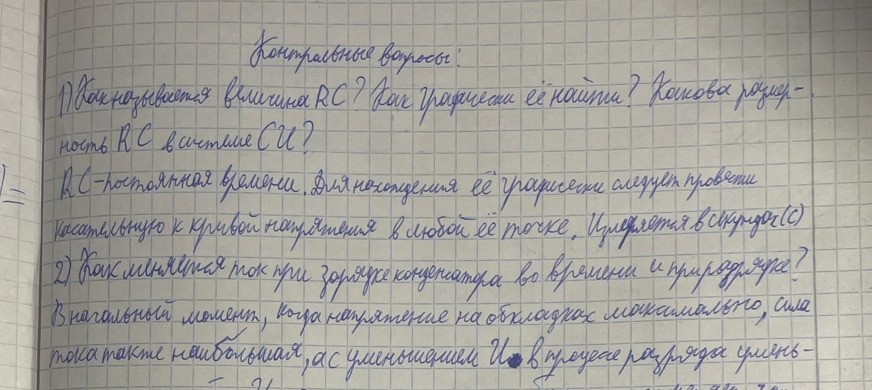 Контрольные вопросы:
1) Как называется величина RC? Как графически её найти? Какова размер-
ность RC в системе СИ?
RC-постоянная времени. Для нахождения её графически следует провести
касательную к кривой напряжения в любой её точке. Измеряется в секундах (с)
2) Как меняется ток при зарядке конденсатора во времени и при разрядке?
В начальный момент, когда напряжение на обкладках максимально, сила
тока также наибольшая, а с уменьшением U в процессе разряда умень-